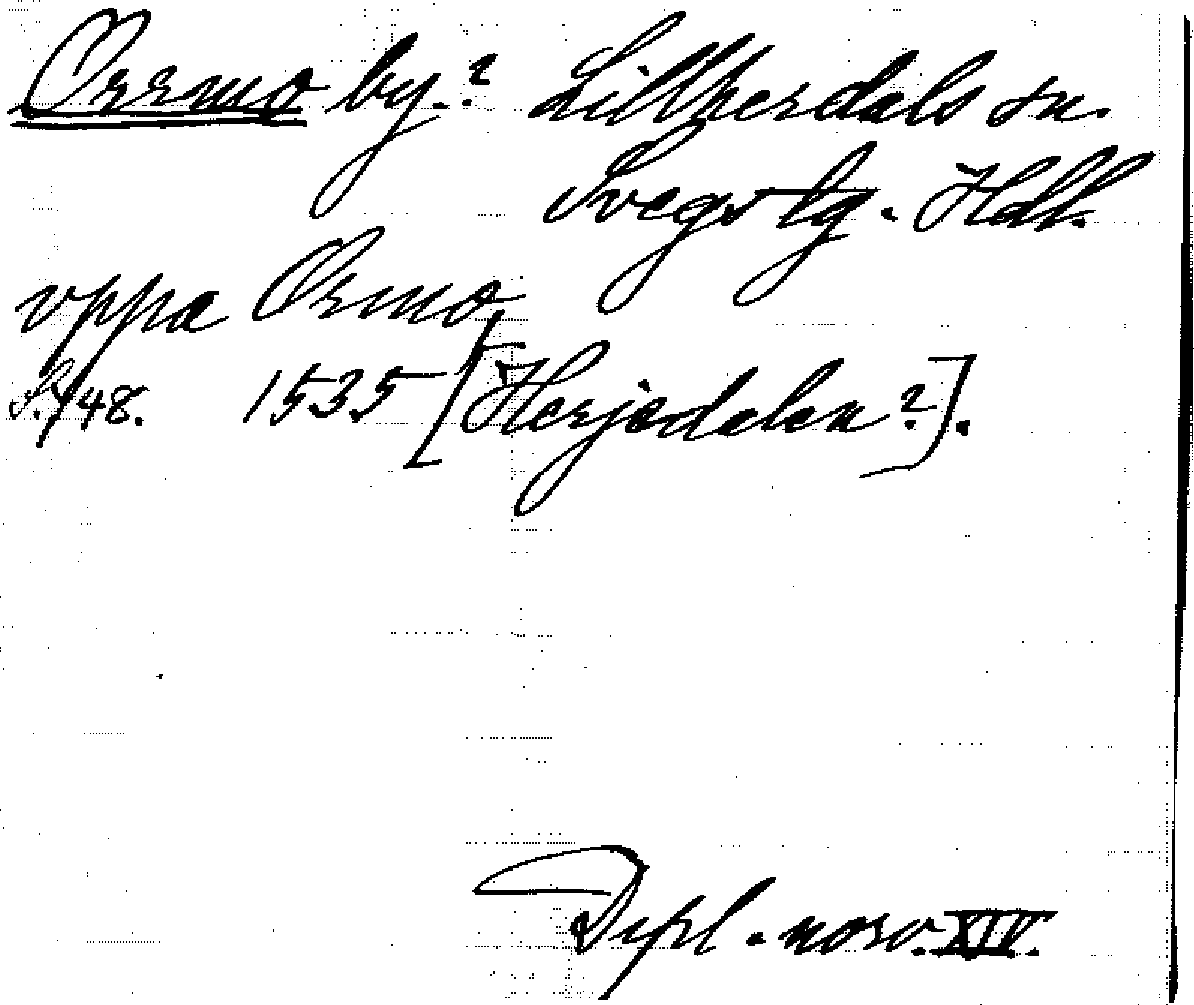 Orrmo by.? Lillherdals sn.
Svegs tg. Hdl.
vppa Ormo,
S. 748. 1535 [Herjedalen?].
Dipl. norv. XIV.